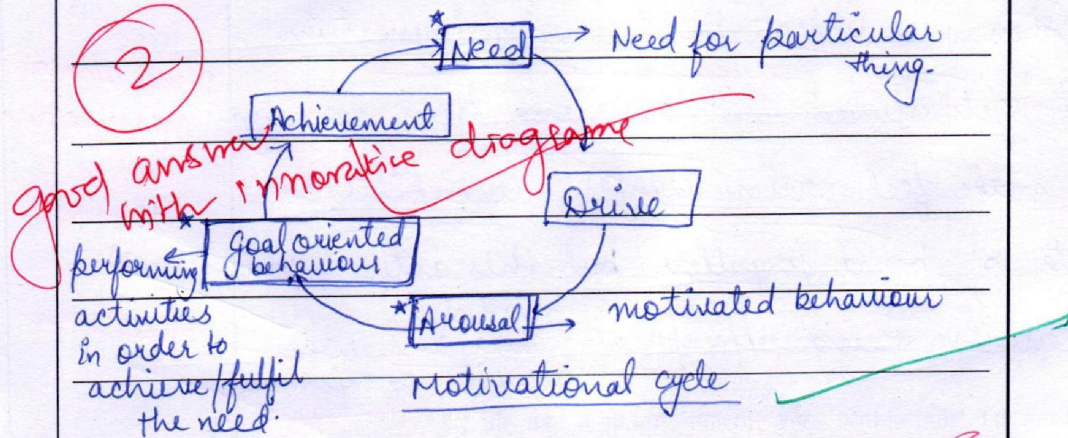 2
Need → Need for particular
thing.
Achievement
good answer
with innovative diagrame
Drive
Goal oriented
behaviour
performing
activities
in order to
achieve/fulfil
the need.
Arousal → motivated behaviour
Motivational cycle